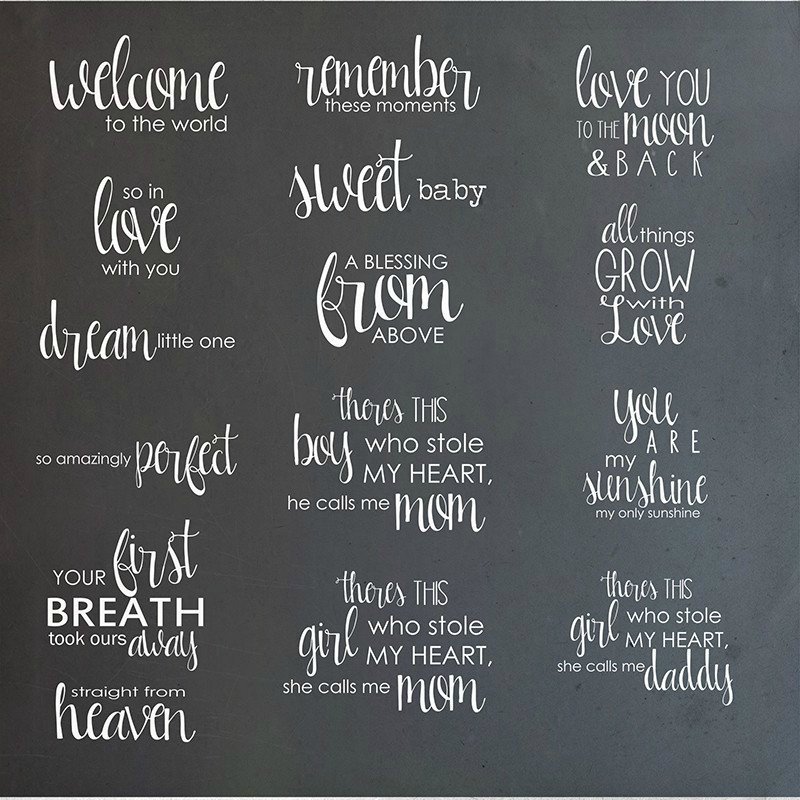 welcome
to the world
so in
love
with you
dream little one
so amazingly perfect
YOUR first
BREATH
took ours away
straight from
heaven
remember
these moments
sweet baby
A BLESSING
from
ABOVE
theres THIS
boy who stole
MY HEART,
he calls me mom
theres THIS
girl who stole
MY HEART,
she calls me mom
love YOU
TO THE moon
& BACK
all things
GROW
with
Love
you
ARE
my
sunshine
my only sunshine
theres THIS
girl who stole
MY HEART,
she calls me daddy